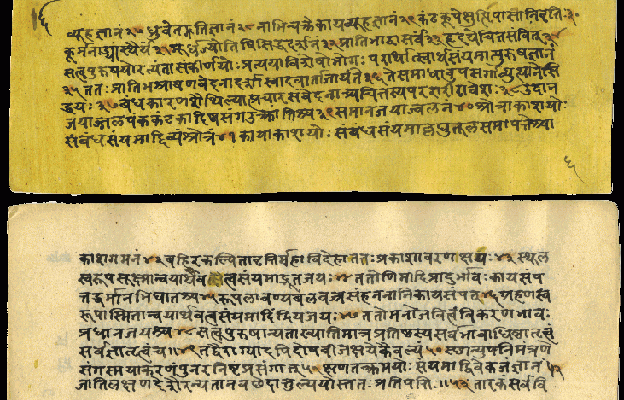 व्यूहज्ञानं २७ ध्रुवे तद्गतिज्ञानं २८ नाभिचक्रे कायव्यूहज्ञानं २९ कंठकूपे क्षुत्पिपासानिवृत्तिः
कूर्मनाड्यां स्थैर्यं ३१ मूर्धज्योतिषि सिद्धदर्शनं ३२ प्रातिभाद्वा सर्वं ३३ हृदये चित्तसंवित्
सत्वपुरुषयोरत्यंतासंकीर्णयोः प्रत्ययाविशेषो भोगः परार्थात्स्वार्थसंयमात्पुरुषज्ञानं
३५ ततः प्रातिभश्रावणवेदनादर्शास्वादवार्ता जायंते ३६ ते समाधावुपसर्गा व्युत्थाने सि
द्धयः ३७ बंधकारणशैथिल्यात्प्रचारसंवेदनाच्च चित्तस्य परशरीरावेशः ३८ उदान
जयाज्जलपंककंटकादिष्वसंग उत्क्रांतिश्च ३९ समानजयाज्ज्वलनं ४० श्रोत्राकाशयोः
संबंधसंयमाद्दिव्यं श्रोत्रं ४१ कायाकाशयोः संबंधसंयमाल्लघुतूलसमापत्तेश्चा
काशगमनं ४२ बहिरकल्पिता वृत्तिर्महाविदेहा ततः प्रकाशावरणक्षयः ४३ स्थूल
स्वरूपसूक्ष्मान्वयार्थवत्वसंयमाद्भूतजयः ४४ ततोणिमादिप्रादुर्भावः कायसंप
त्तद्धर्मानभिघातश्च ४५ रूपलावण्यबलवज्रसंहननत्वानि कायसंपत् ४६ ग्रहणस्व
रूपास्मितान्वयार्थवत्वसंयमादिंद्रियजयः ४७ ततो मनोजवित्वं विकरणभावः
प्रधानजयश्च ४८ सत्वपुरुषान्यताख्यातिमात्रप्रतिष्ठस्य सर्वभावाधिष्ठातृत्वं
सर्वज्ञातृत्वं च ॥४९ तद्वैराग्यादपि दोषबीजक्षये कैवल्यं ५० स्थान्युपनिमंत्रणे
संगस्मयाकरणं पुनरनिष्टप्रसंगात् ५१ क्षणतत्क्रमयोः संयमाद्विवेकजं ज्ञानं
जातिलक्षणदेशैरन्यतानवछेदात्तुल्ययोस्ततः प्रतिपत्तिः ॥५३ तारकं सर्ववि